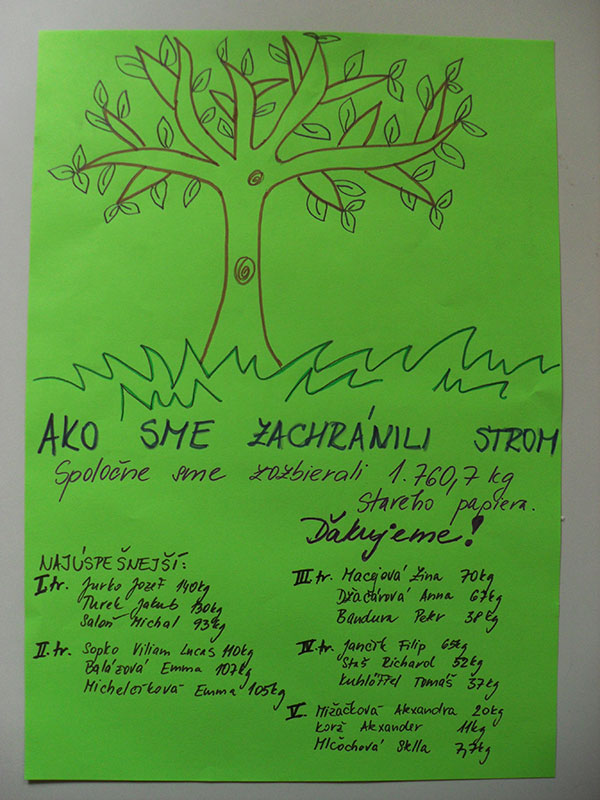 AKO SME ZACHRÁNILI STROM
Spoločne sme zozbierali 1.760,7 kg
Starého papiera.
Ďakujeme!
NAJÚSPEŠNEJŠÍ:
I. tr. Jurko Jozef 140kg
Turek Jakub 130kg
Saloň Michal 93kg
II. tr. Sopko Viliam Lucas 110kg
Balázová Emma 107kg
Michelčíková Emma 105kg
III. tr. Macejová Lina 70kg
Dračárová Anna 67kg
Bandura Peter 38kg
IV. tr. Jančík Filip 65kg
Staš Richard 52kg
Kuhlöffel Tomáš 37kg
V. Mižáčková Alexandra 20kg
Korž Alexander 11kg
Mlčochová Sklla 7,7kg